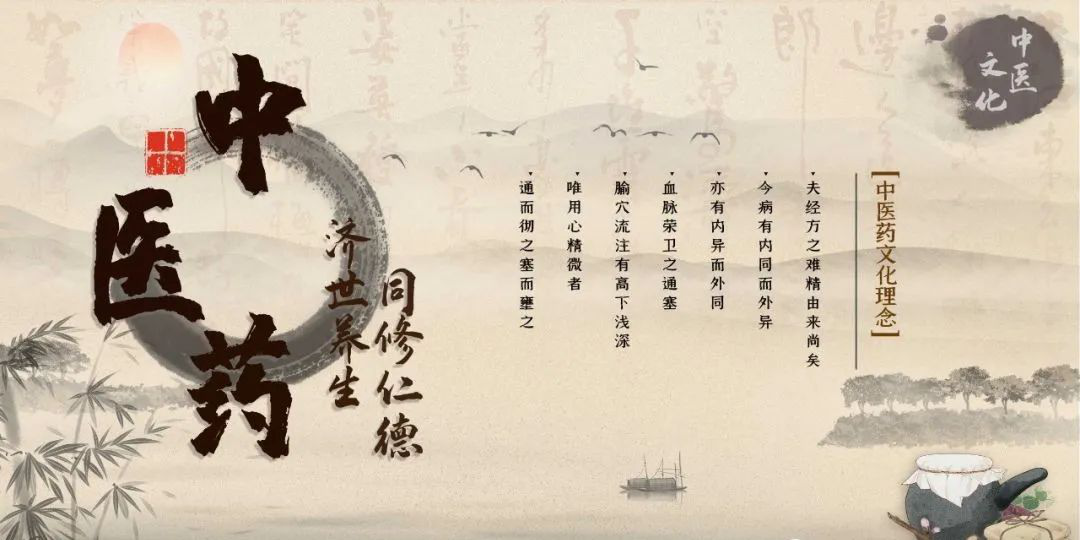 中医文化
【中医药文化理念】
夫经方之难精由来尚矣
今病有内同而外异
亦有内异而外同
血脉荣卫之通塞
腧穴流注有高下浅深
唯用心精微者
通而彻之塞而壅之
中医药
同修仁德
济世养生